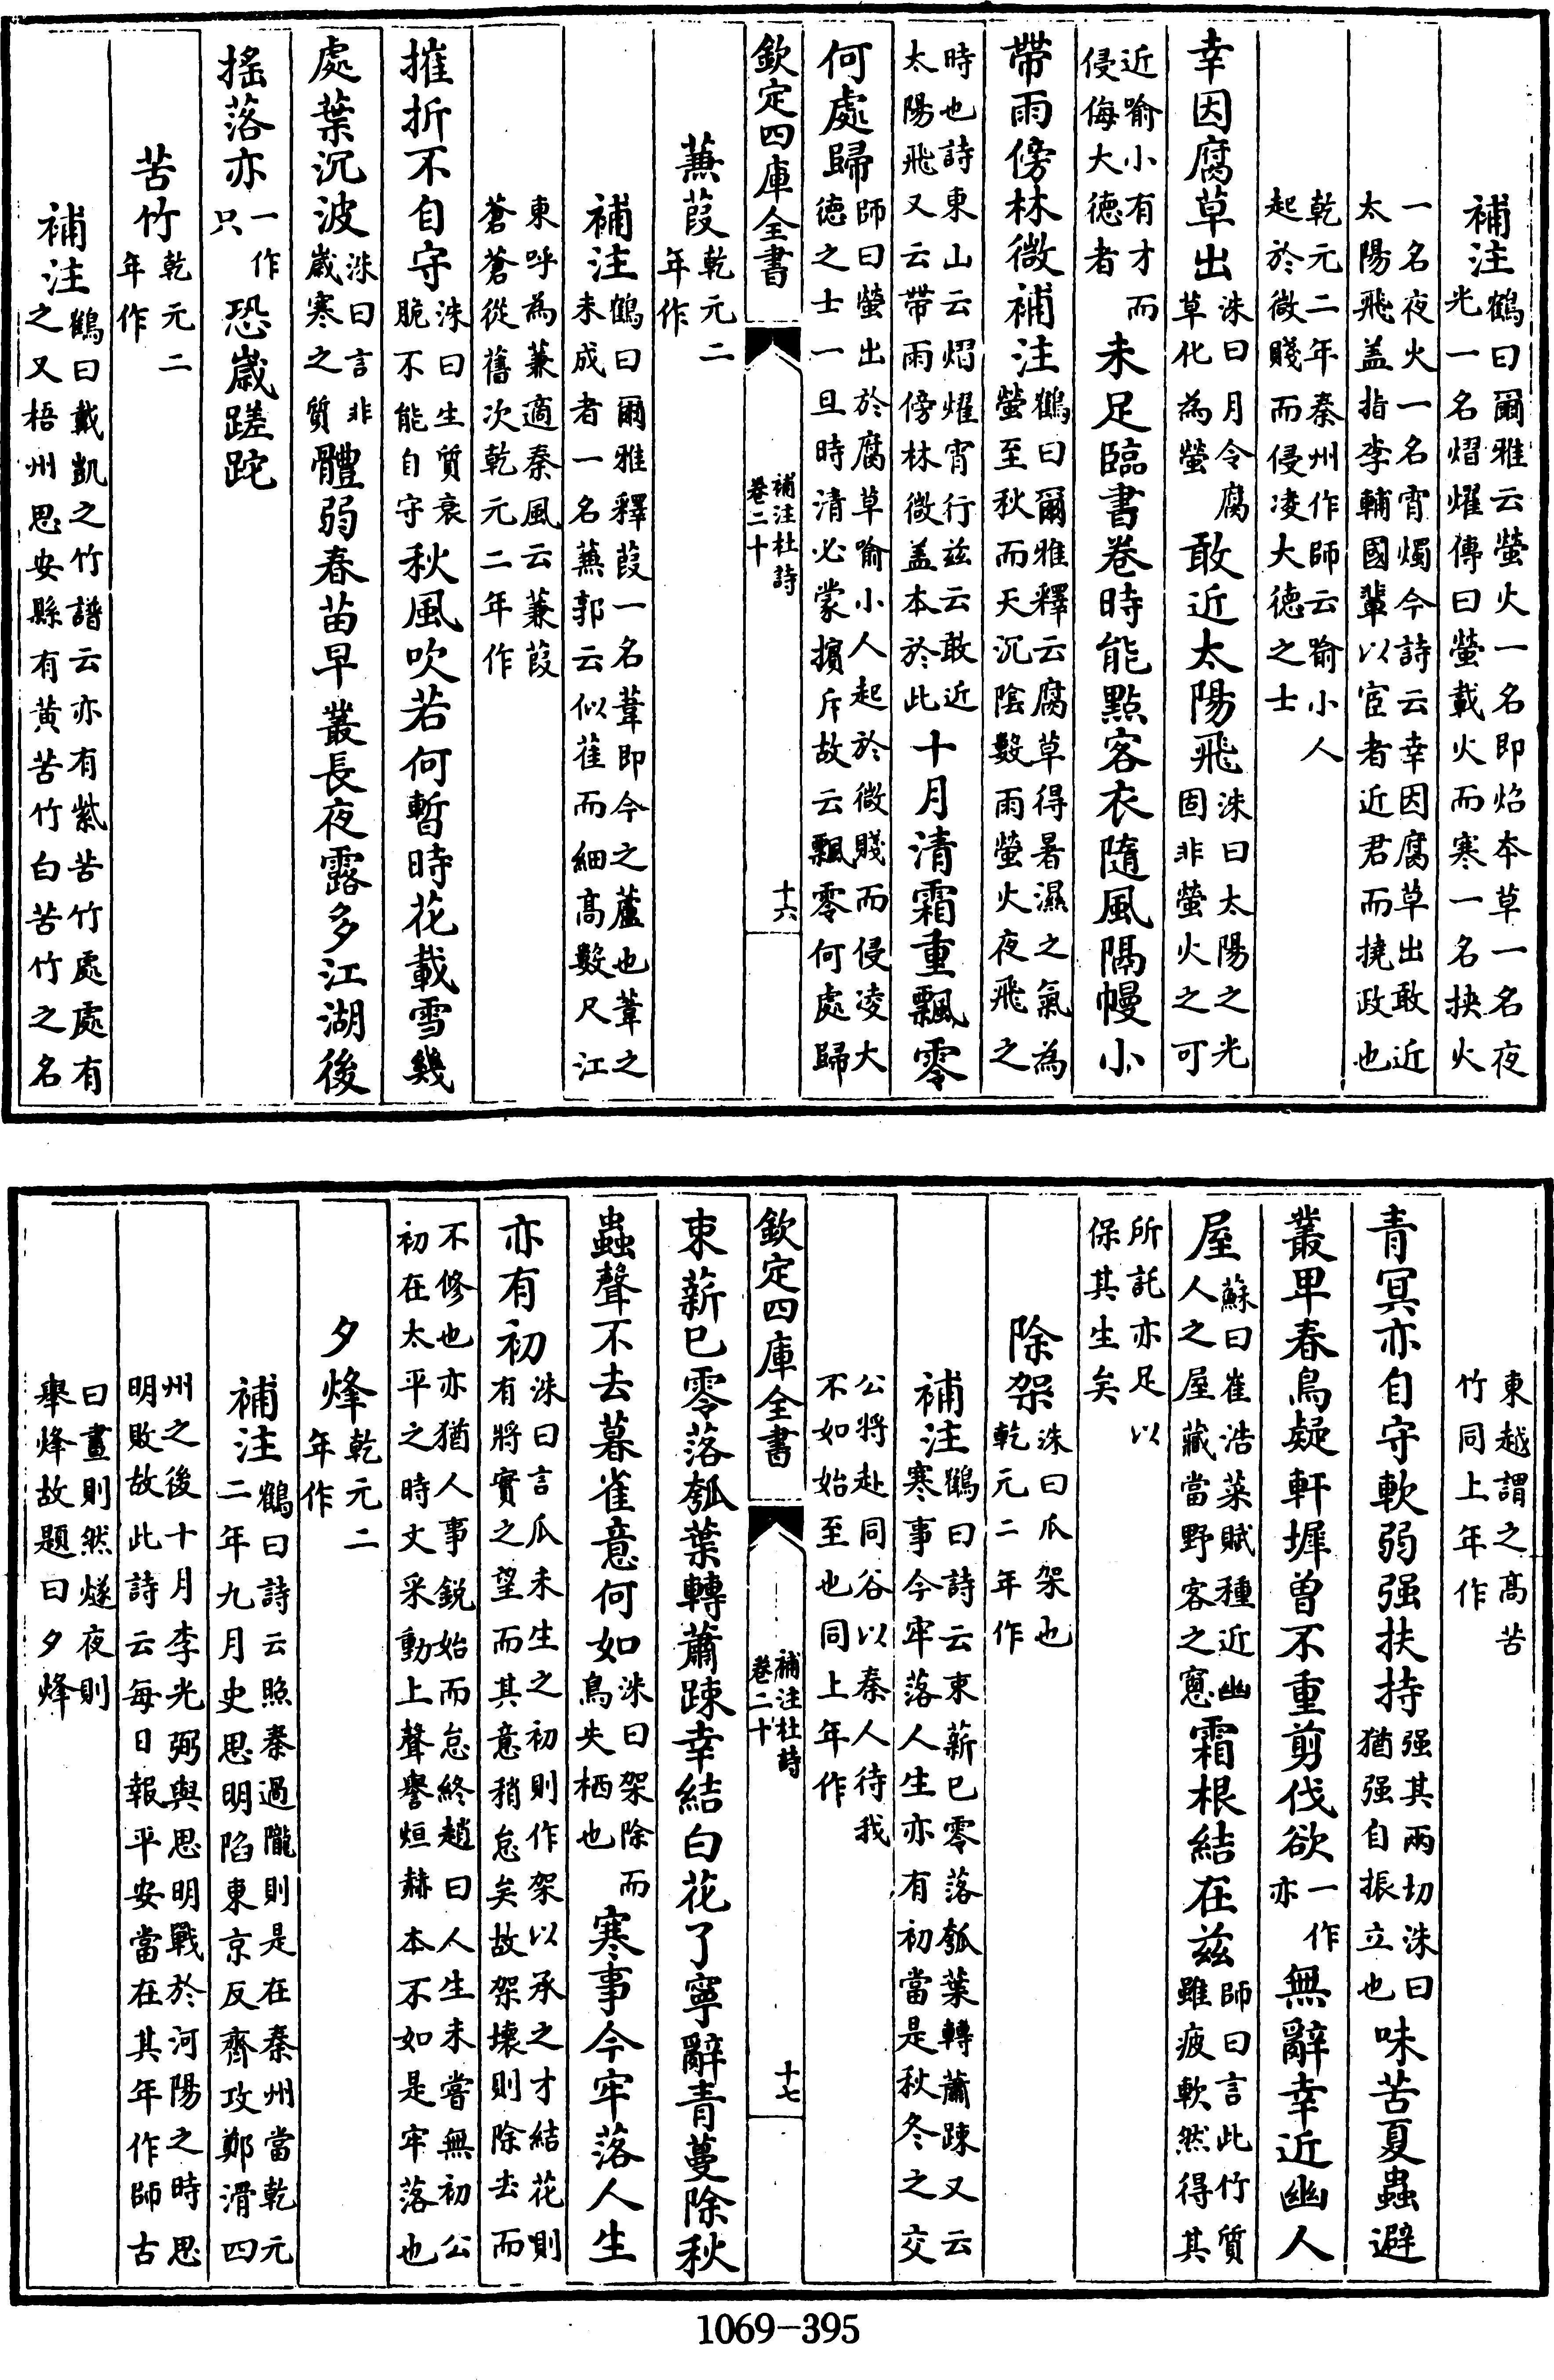 補注鶴曰爾雅云螢火一名即炤本草一名夜
光一名熠燿傳曰螢載火而寒一名抰火
一名夜火一名宵燭今詩云幸因腐草出敢近
太陽飛盖指李輔國輩以宦者近君而撓政也
乾元二年秦州作師云喻小人
起於微賤而侵凌大德之士
幸因腐草出洙曰月令腐草化為螢敢近太陽飛洙曰太陽之光固非螢火之可
近喻小有才而侵侮大德者未足臨書卷時能點客衣隨風隔幔小
帶雨傍林微補注鶴曰爾雅釋云腐草得暑濕之氣為螢至秋而天沉陰數雨螢火夜飛之
時也詩東山云熠燿宵行兹云敢近太陽飛又云帶雨傍林微盖本於此十月清霜重飄零
何處歸師曰螢出於腐草喻小人起於微賤而侵凌大德之士一旦時清必蒙擯斥故云飄零何處歸
欽定四庫全書
補注杜詩
卷二十
十六
蒹葭乾元二年作
補注鶴曰爾雅釋葭一名葦即今之蘆也葦之未成者一名蒹郭云似萑而細髙數尺江
東呼為蒹適秦風云蒹葭蒼蒼從舊次乾元二年作
摧折不自守洙曰生質衰脆不能自守秋風吹若何暫時花載雪幾
處葉沉波洙曰言非歲寒之質體弱春苗早叢長夜露多江湖後
揺落亦一作只恐歲蹉跎
苦竹乾元二年作
補注鶴曰戴凱之竹譜云亦有紫苦竹處處有之又梧州思安縣有黄苦竹白苦竹之名
東越謂之高苦竹同上年作
青冥亦自守軟弱强扶持强其兩切洙曰猶强自振立也味苦夏蟲避
叢卑春鳥疑軒墀曾不重剪伐欲一作亦無辭幸近幽人
屋蘇曰崔浩菜賦種近幽人之屋藏當野客之窻霜根結在兹師曰言此竹質雖疲軟然得其
所託亦足以保其生矣
除架洙曰瓜架也乾元二年作
補注鶴曰詩云束薪已零落瓠葉轉蕭疎又云寒事今牢落人生亦有初當是秋冬之交
公將赴同谷以秦人待我不如始至也同上年作
欽定四庫全書
補注杜詩
卷二十
十七
束薪已零落瓠葉轉蕭疎幸結白花了寧辭青蔓除秋
蟲聲不去暮雀意何如洙曰架除而鳥失栖也寒事今牢落人生
亦有初洙曰言瓜未生之初則作架以承之才結花則有將實之望而其意稍怠矣故架壞則除去而
不修也亦猶人事鋭始而怠終趙曰人生未嘗無初公初在太平之時文采動上聲譽烜赫本不如是牢落也
夕烽乾元二年作
補注鶴曰詩云照秦過隴則是在秦州當乾元二年九月史思明陷東京反齊攻鄭滑四
州之後十月李光弼與思明戰於河陽之時思明敗故此詩云每日報平安當在其年作師古
曰晝則然燧夜則舉烽故題曰夕烽
1069-395